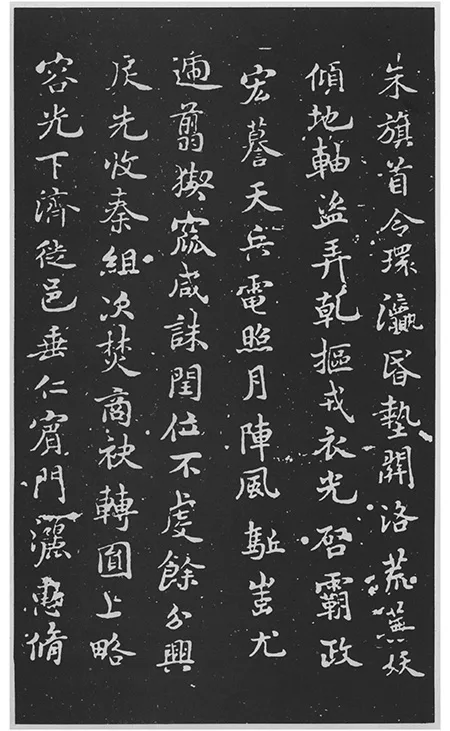 朱旗首令環瀛昏墊關洛荒蕪妖
傾地軸盜弄乾樞戎衣光啓霸政
一宏謩天兵電照月陣風駈蚩尤
遞翦猰窳咸誅閏位不虔餘分興
戾先收秦組次焚商袂轉圓上略
容光下濟徙邑垂仁賓門灑惠脩